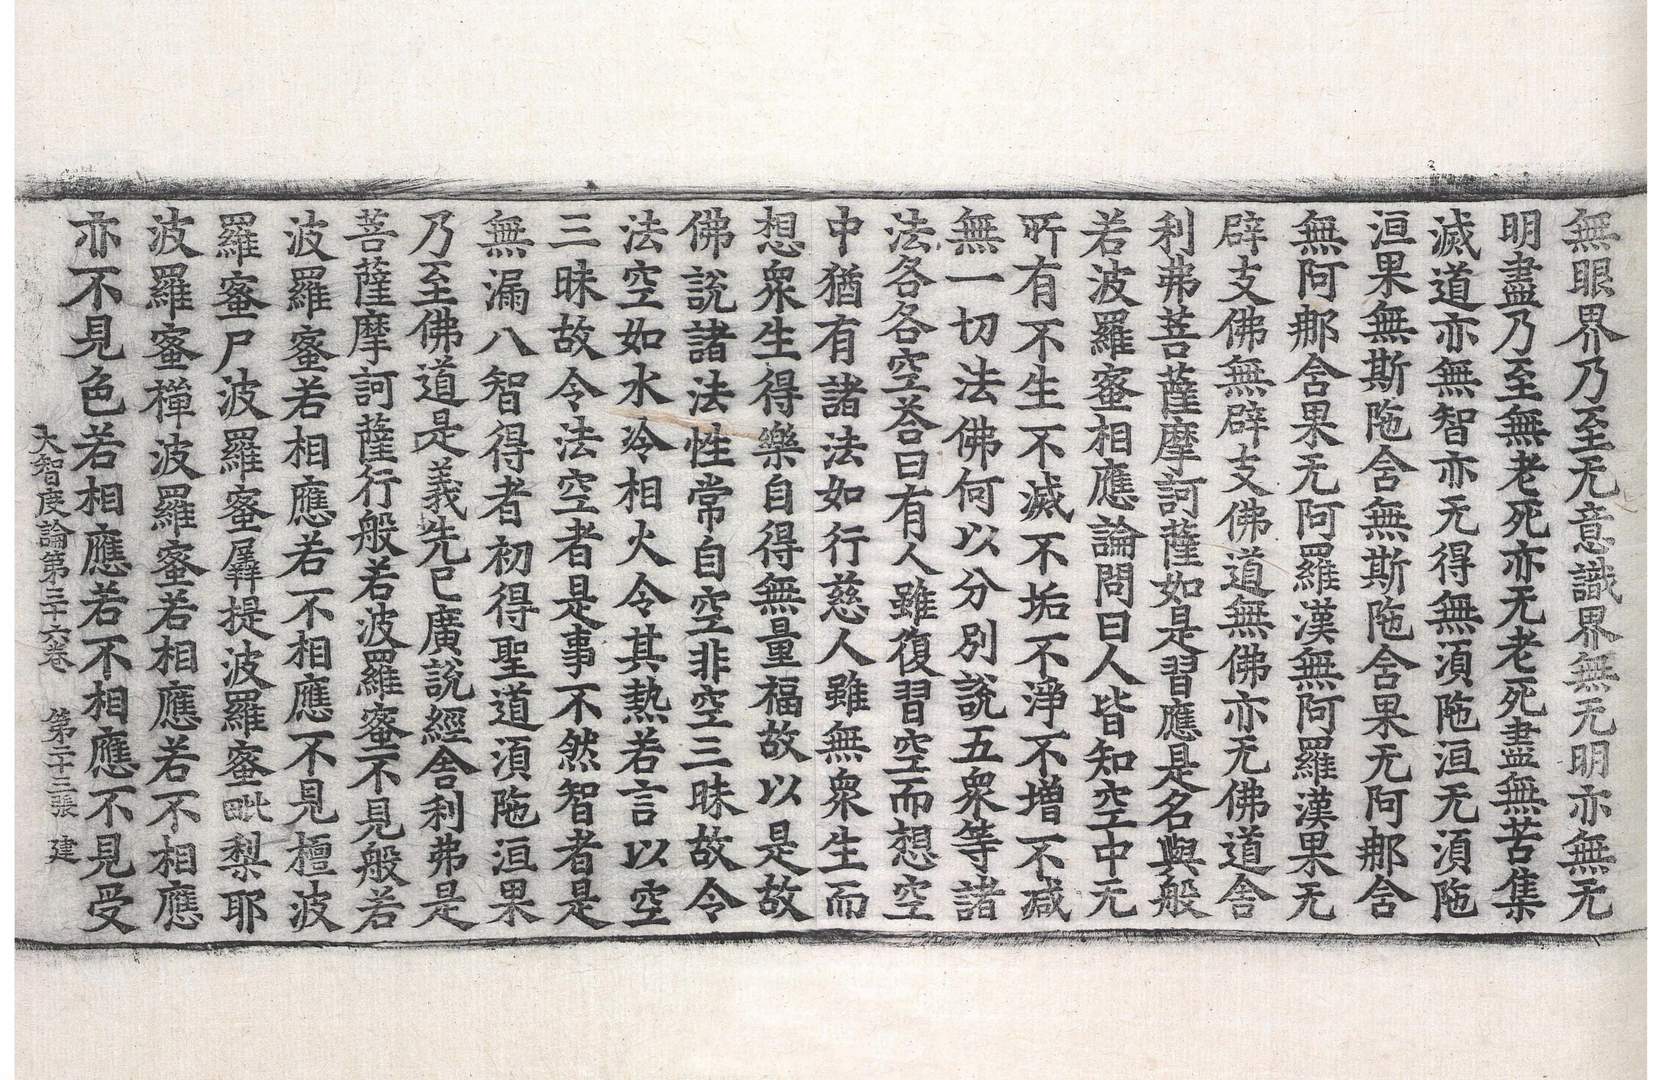 無眼界乃至无意識界無无明亦無无
明盡乃至無老死亦无老死盡無苦集
滅道亦無智亦无得無湏陁洹无湏陁
洹果無斯陁含無斯陁含果无阿那含
無阿那含果无阿羅漢無阿羅漢果无
辟支佛無辟支佛道無佛亦无佛道舍
利弗菩薩摩訶薩如是習應是名與般
若波羅蜜相應論問曰人皆知空中无
所有不生不滅不垢不淨不增不減
無一切法佛何以分別說五衆等諸
法各各空荅曰有人雖復習空而想空
中猶有諸法如行慈人雖無衆生而
想衆生得樂自得無量福故以是故
佛說諸法性常自空非空三昧故令
法空如水冷相火令其熱若言以空
三昧故令法空者是事不然智者是
無漏八智得者初得聖道湏陁洹果
乃至佛道是義先已廣說經舍利弗是
菩薩摩訶薩行般若波羅蜜不見般若
波羅蜜若相應若不相應不見檀波
羅蜜尸波羅蜜羼提波羅蜜毗梨耶
波羅蜜禪波羅蜜若相應若不相應
亦不見色若相應若不相應不見受
大智度論第三十六卷 第二十三張 建